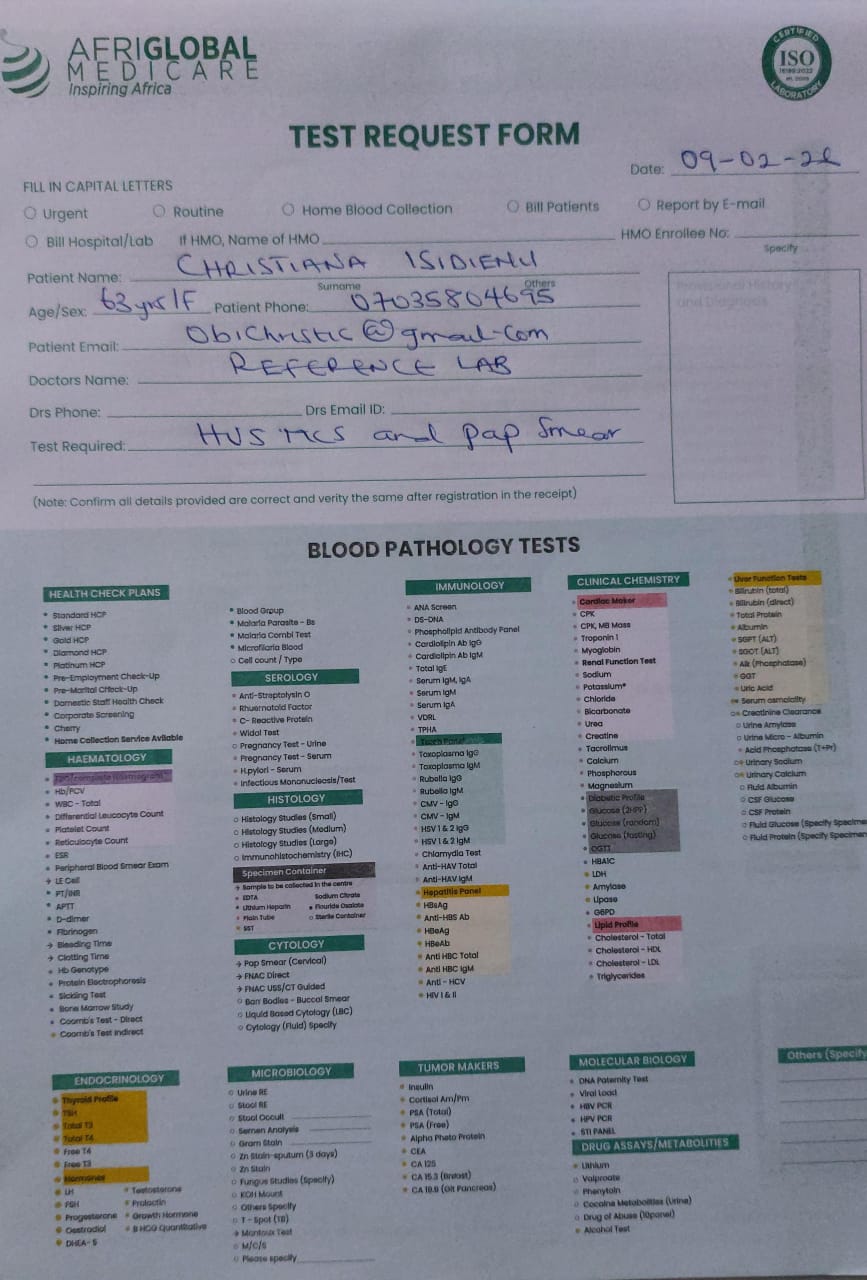 AFRIGLOBAL
MEDICARE
Inspiring Africa
CERTIFIED
ISO
15189:2022
LABORATORY
TEST REQUEST FORM
Date: 09-02-26
FILL IN CAPITAL LETTERS
Urgent Routine Home Blood Collection Bill Patients Report by E-mail
Bill Hospital/Lab If HMO, Name of HMO HMO Enrollee No:
Specify
Patient Name: CHRISTIANA ISIDIENU
Surname Others
Age/Sex: 63yrs/F Patient Phone: 07035804695
Provisional History and Diagnosis
Patient Email: Obichristic@gmail.com
Doctors Name: REFERENCE LAB
Drs Phone: Drs Email ID:
Test Required: HVS MCS and pap Smear
(Note: Confirm all details provided are correct and verity the same after registration in the receipt)
BLOOD PATHOLOGY TESTS
HEALTH CHECK PLANS
Standard HCP
Silver HCP
Gold HCP
Diamond HCP
Platinum HCP
Pre-Employment Check-Up
Pre-Marital Check-Up
Domestic Staff Health Check
Corporate Screening
Cherry
Home Collection Service Avilable
HAEMATOLOGY
Hb/PCV
WBC - Total
Differential Leucocyte Count
Platelet Count
Reticulocyte Count
ESR
Peripheral Blood Smear Exam
LE Cell
PT/INR
APTT
D-dimer
Fibrinogen
Bleeding Time
Clotting Time
Hb Genotype
Protein Electrophoresis
Sickling Test
Bone Marrow Study
Coomb's Test - Direct
Coomb's Test Indirect
Blood Group
Malaria Parasite - Bs
Malaria Combi Test
Microfilaria Blood
Cell count / Type
SEROLOGY
Anti-Streptolysin O
Rhuernatoid Factor
C- Reactive Protein
Widal Test
Pregnancy Test - Urine
Pregnancy Test - Serum
H.pylori - Serum
Infectious Mononucleosis/Test
HISTOLOGY
Histology Studies (Small)
Histology Studies (Medium)
Histology Studies (Large)
Immunohistochemistry (IHC)
Specimen Container
Sample to be collected in the centre
EDTA Sodium Citrate
Lithium Heparin Flouride Oxalate
Plain Tube Sterile Container
SST
CYTOLOGY
Pap Smear (Cervical)
FNAC Direct
FNAC USS/CT Guided
Barr Bodies - Buccal Smear
Liquid Based Cytology (LBC)
Cytology (Fluid) Specify
IMMUNOLOGY
ANA Screen
DS-DNA
Phospholipid Antibody Panel
Cardiolipin Ab IgG
Cardiolipin Ab IgM
Total IgE
Serum IgM, IgA
Serum IgM
Serum IgA
VDRL
TPHA
Torch Panel
Toxoplasma IgG
Toxoplasma IgM
Rubella IgG
Rubella IgM
CMV - IgG
CMV - IgM
HSV 1 & 2 IgG
HSV 1 & 2 IgM
Chlamydia Test
Anti-HAV Total
Anti-HAV IgM
Hepatitis Panel
HBsAg
Anti-HBS Ab
HBeAg
HBeAb
Anti HBC Total
Anti HBC IgM
Anti - HCV
HIV I & II
CLINICAL CHEMISTRY
Cardiac Maker
CPK
CPK, MB Mass
Troponin 1
Myoglobin
Renal Function Test
Sodium
Potassium*
Chloride
Bicarbonate
Urea
Creatine
Tacrolimus
Calcium
Phosphorous
Magnesium
Diabetic Profile
Glucose (2HPP)
Glucose (random)
Glucose (fasting)
OGTT
HBA1C
LDH
Amylase
Lipase
G6PD
Lipid Profile
Cholesterol - Total
Cholesterol - HDL
Cholesterol - LDL
Triglycerides
Liver Function Tests
Bilirubin (total)
Bilirubin (direct)
Total Protein
Albumin
SGPT (ALT)
SGOT (ALT)
Alk (Phosphatase)
GGT
Uric Acid
Serum osmolality
Creatinine Clearance
Urine Amylase
Urine Micro - Albumin
Acid Phosphatase (T+Pr)
Urinary Sodium
Urinary Calcium
Fluid Albumin
CSF Glucose
CSF Protein
Fluid Glucose (Specify Specime
Fluid Protein (Specify Specimen
ENDOCRINOLOGY
Thyroid Profile
TSH
Total T3
Total T4
Free T4
Free T3
Hormones
LH Testosterone
FSH Prolactin
Progesterone Growth Hormone
Oestradiol B HCG Quantitative
DHEA- S
MICROBIOLOGY
Urine RE
Stool RE
Stool Occult
Semen Analysis
Gram Stain
Zn Stain-sputum (3 days)
Zn Stain
Fungus Studies (Specify)
KOH Mount
Others Specify
T - Spot (TB)
Mantoux Test
M/C/S
Please specify
TUMOR MAKERS
Insulin
Cortisol Am/Pm
PSA (Total)
PSA (Free)
Alpha Photo Protein
CEA
CA 125
CA 15.3 (Breast)
CA 19.9 (Git Pancreas)
MOLECULAR BIOLOGY
DNA Paternity Test
Viral Load
HBV PCR
HPV PCR
STI PANEL
DRUG ASSAYS/METABOLITIES
Lithium
Valproate
Phenytoin
Cocaine Metabolities (Urine)
Drug of Abuse (10panel)
Alcohol Test
Others (Specify